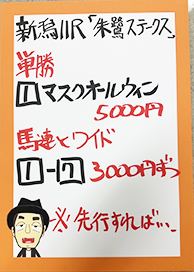 新潟11R「朱鷺ステークス」
単勝
1 マスクオールウィン
5000円
馬連とワイド
1-17 3000円ずつ
※先行すれば…